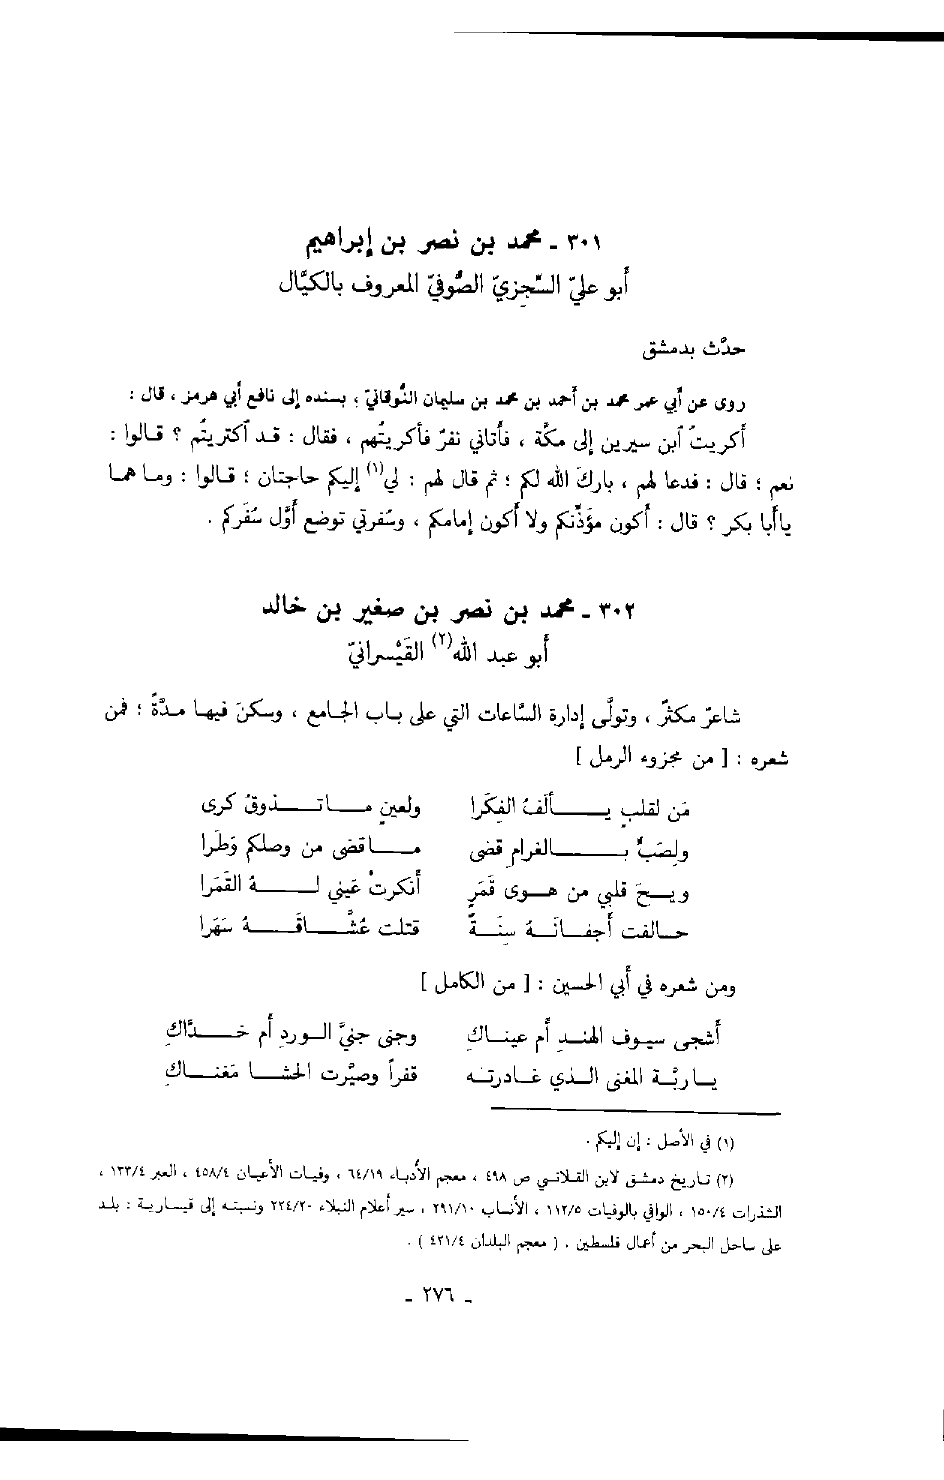 ٣٠١ ـ محمد بن نصر بن إبراهيم
أبو عليّ السِّجزيّ الصُّوفيّ المعروف بالكيَّال
حدَّث بدمشق
روى عن أبي عمر محمد بن أحمد بن محمد بن سليمان النُّوقانيّ ؛ بسنده إلى نافع أبي هرمز ، قال :
أكريتُ آبن سيرين إلى مكَّة ، فأتاني نفرٌ فأكريتُهم ، فقال : قد آكتريتُم ؟ قالوا :
نعم ؛ قال : فدعا لهم ، باركَ الله لكم ؛ ثم قال لهم : لي(١) إليكم حاجتان ؛ قالوا : وما هما
ياأبا بكر ؟ قال : أكون مؤذِّنكم ولا أكون إمامكم ، وسُفرتي توضع أوَّل سُفَركم .
٣٠٢ ـ محمد بن نصر بن صغير بن خالد
أبو عبد الله(٢) القَيْسرانيّ
شاعرٌ مكثرٌ ، وتولَّى إدارة السَّاعات التي على باب الجامع ، وسكنَ فيها مدَّةً ؛ فمن
شعره : [ من مجزوء الرمل ]
مَن لقلبٍ يـألفُ الفِكَرا ولعينٍ مـاتـذوقُ كرى
ولصَبٍّ بـالغرامِ قضى مـاقضى من وصلكم وَطَرا
ويـحَ قلبي من هـوى قَمَرٍ أنكرتْ عَيني لـهُ القَمَرا
حـالفت أجفـانَـهُ سِنَـةٌ قتلت عُشَّـاقَـهُ سَهَرا
ومن شعره في أبي الحسين : [ من الكامل ]
أشجى سيـوف الهنـدِ أم عينـاكِ وجنى جنيَّ الـوردِ أم خـدَّاكِ
يـاربَّـة المغنى الـذي غـادرتـه قفراً وصيَّرت الحشـا مَغنـاكِ
(١) في الأصل : إن إليكم .
(٢) تـاريخ دمشق لابن القـلانـي ص ٤٩٨ ، معجم الأدبـاء ٦٤/١٩ ، وفيـات الأعيـان ٤٥٨/٤ ، العبر ١٣٣/٤ ،
الشذرات ١٥٠/٤ ، الوافي بالوفيات ١١٢/٥ ، الأنساب ٢٩١/١٠ ، سير أعلام النبلاء ٢٢٤/٢٠ ونسبتـه إلى قيسـاريـة : بلـد
على سـاحل البحر من أعمال فلسطين . ( معجم البلدان ٤٢١/٤ ) .
ـ ٢٧٦ ـ